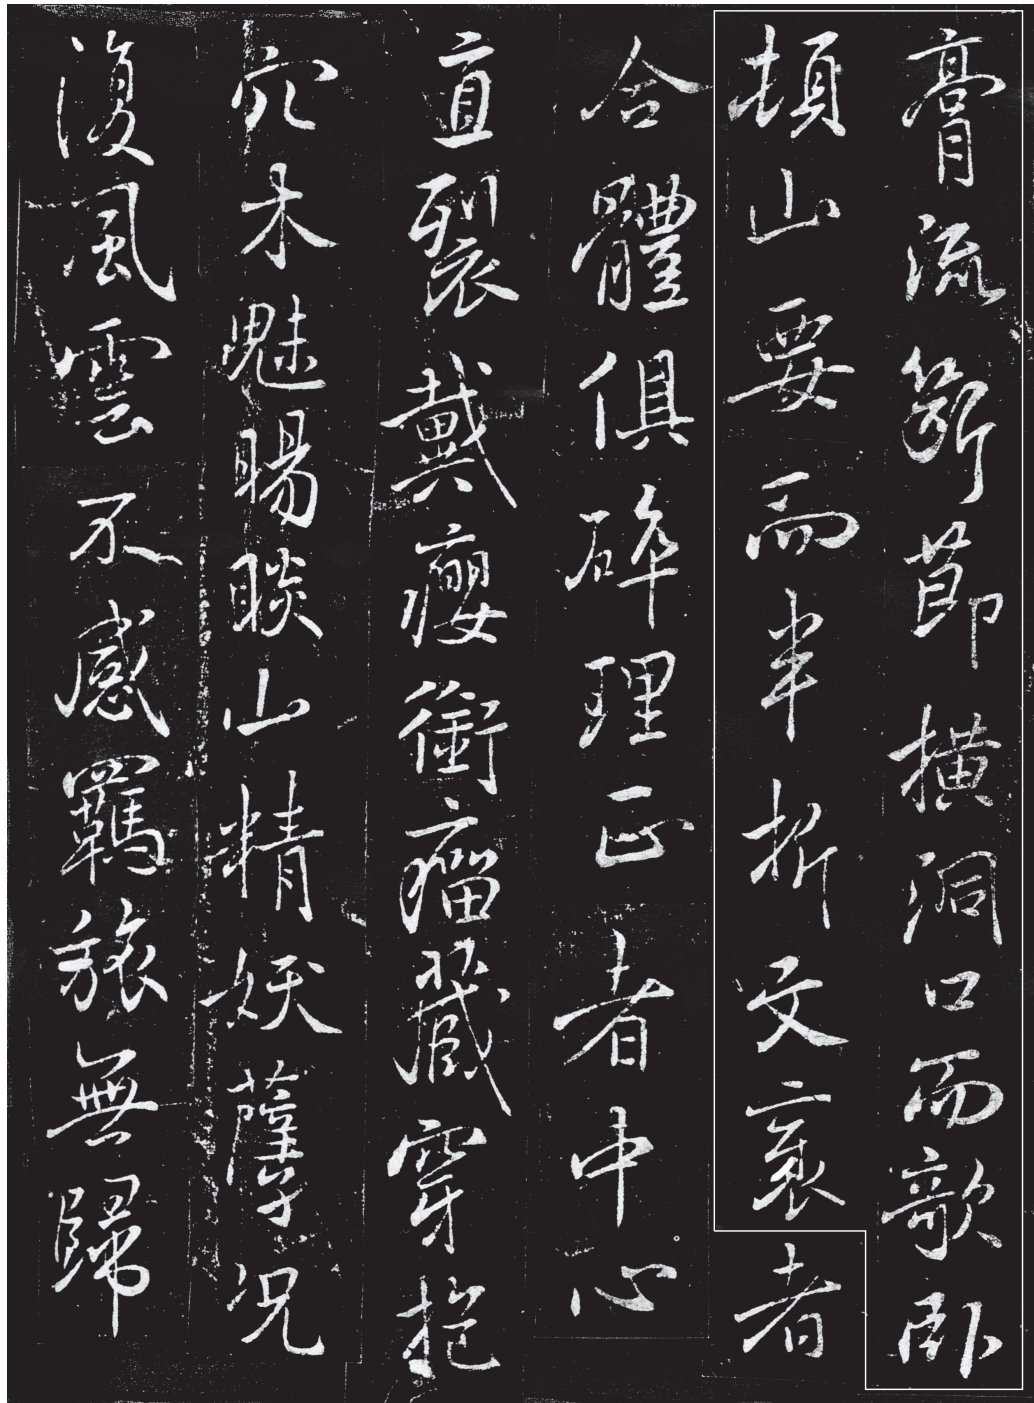 膏流斷節橫洞口而欹臥
頓山要而半折文衺者
合體俱碎理正者中心
直裂戴癭銜瘤藏穿抱
穴木魅睗睒山精妖孽況
復風雲不感羈旅無歸